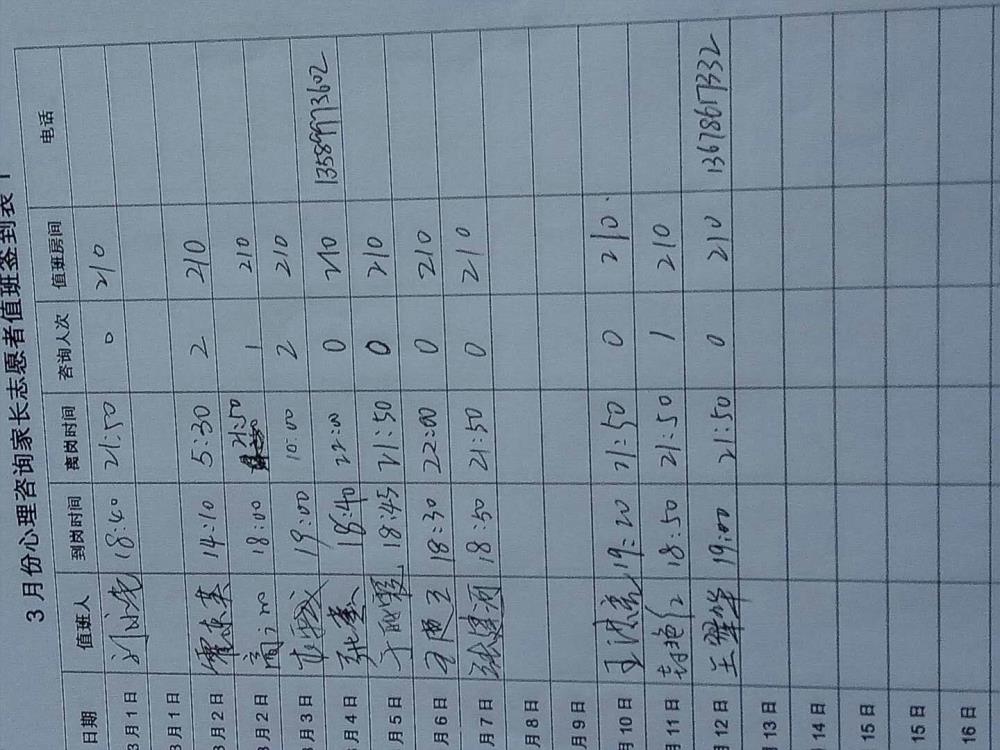 3月份心理咨询家长志愿者值班签到表1
日期 值班人 到岗时间 离岗时间 咨询人次 值班房间 电话
3月1日 18:40 21:50 0 210
3月1日
3月2日 霍东英 14:10 5:30 2 210
3月2日 18:00 21:50 1 210
3月3日 19:00 10:00 2 210
3月4日 18:40 22:00 0 210 13589973602
月5日 18:45 21:50 0 210
月6日 18:30 22:00 0 210
月7日 18:50 21:50 0 210
月8日
月9日
月10日 19:20 21:50 0 210
月11日 18:50 21:50 1 210
月12日 王翠华 19:00 21:50 0 210 13678617332
13日
14日
15日
15日
16日